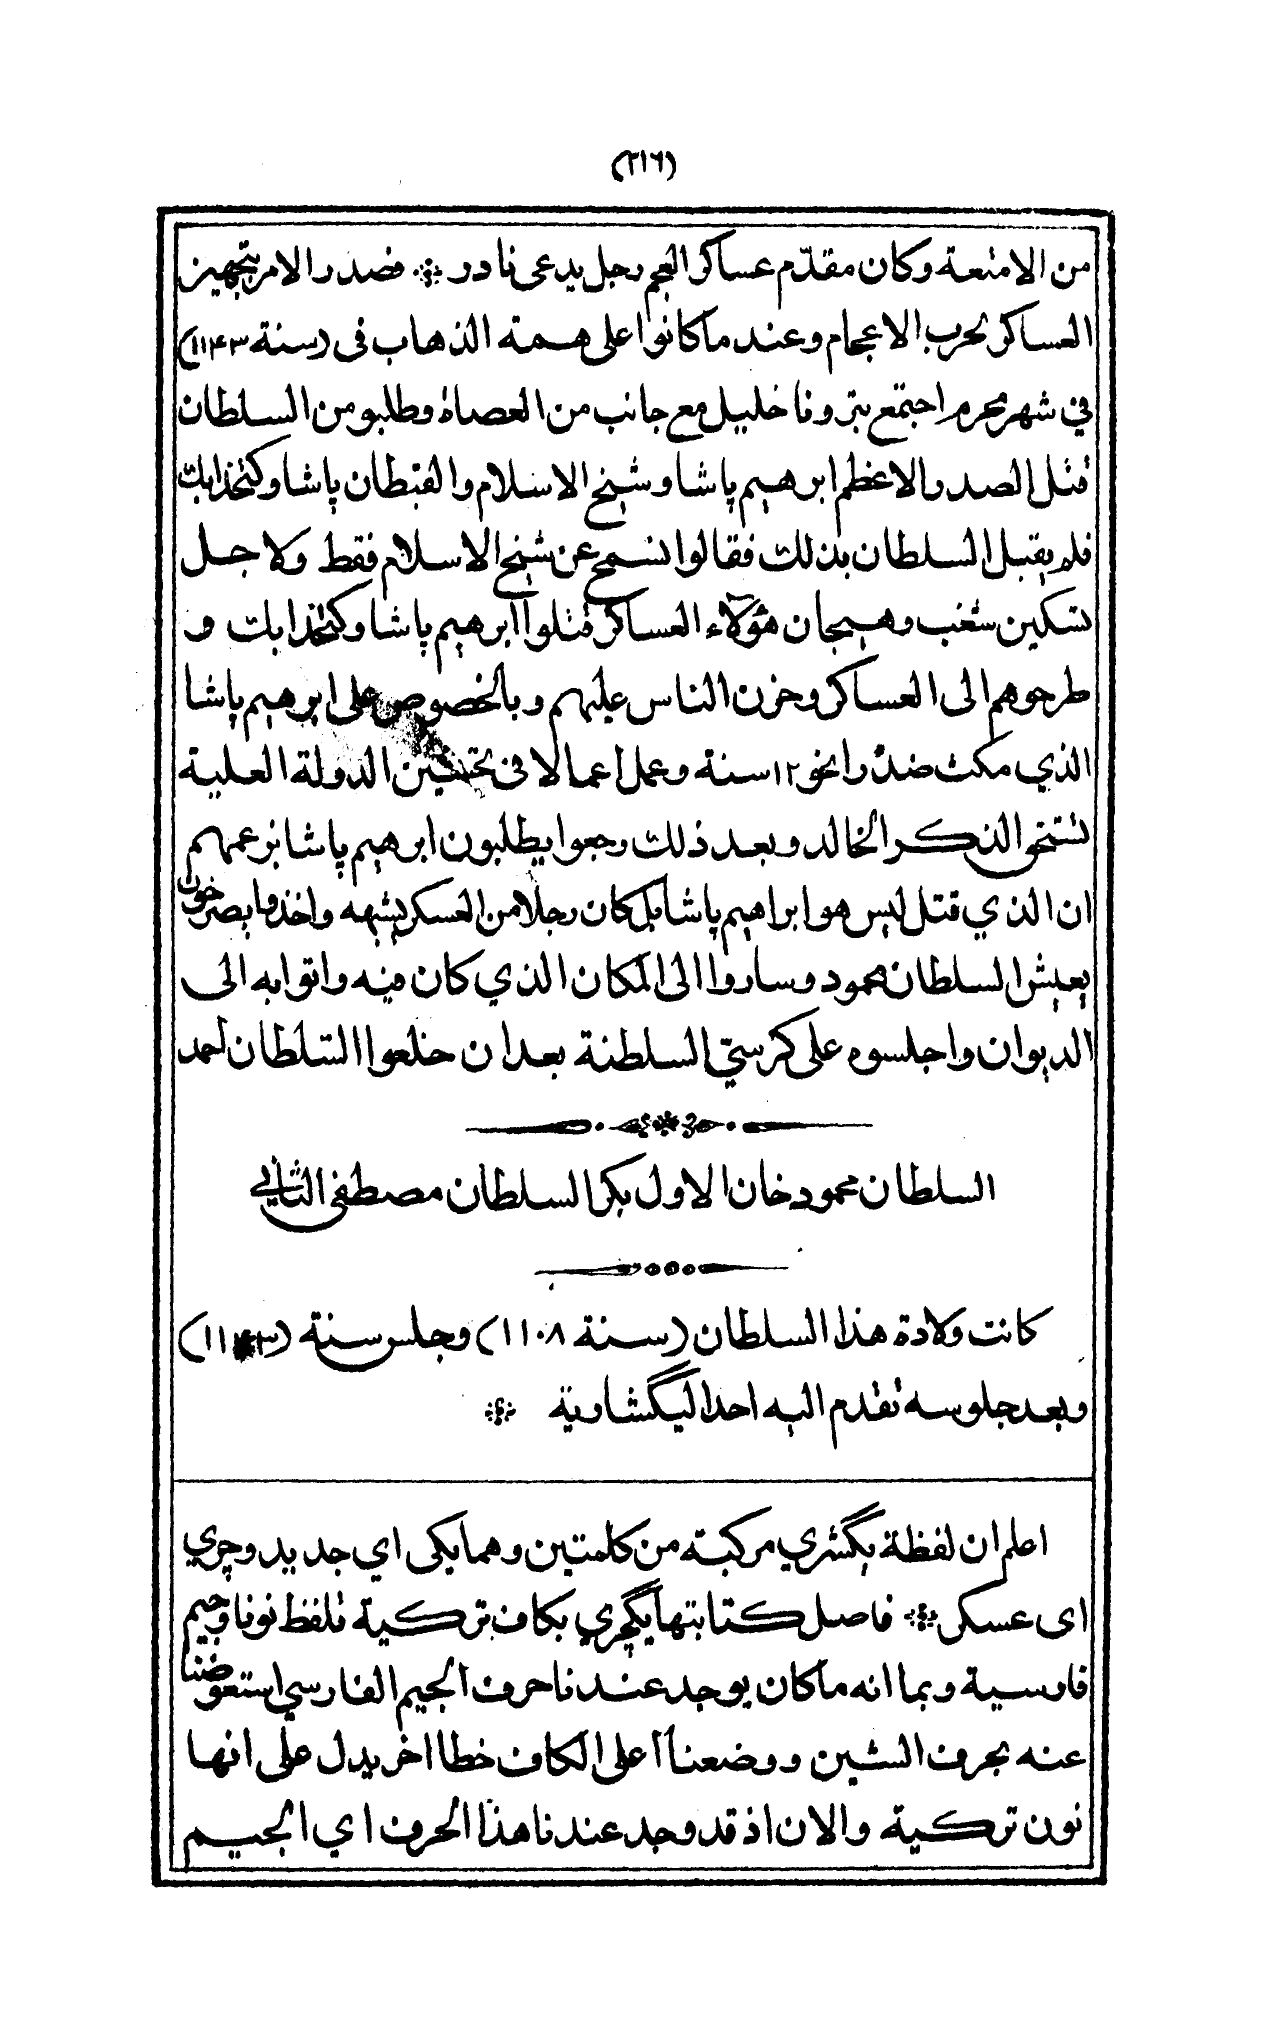 (٢١٦)
من الامتعة وكان مقدّم عساكر العجم رجل يدعى نادر * فصدر الامر بتجهيز
العساكر لحرب الاعجام وعند ما كانوا على همة الذهاب فى (سنة ١١٤٣)
في شهر محرم اجتمع بترونا خليل مع جانب من العصاة وطلبو من السلطان
قتل الصدر الاعظم ابرهيم پاشا وشيخ الاسلام والقبطان پاشا وكتخدا بك
فلم يقبل السلطان بذلك فقالوا نسمح عن شيخ الاسلام فقط ولاجل
تسكين شغب وهيجان هؤلاء العساكر قتلوا ابرهيم پاشا وكتخدا بك و
طرحوهم الى العساكر وحزن الناس عليهم وبالخصوص على ابرهيم پاشا
الذي مكث صدرا نحو ١٢ سنة وعمل اعمالا في تحسين الدولة العلية
تستحق الذكر الخالد وبعد ذلك رجعوا يطلبون ابرهيم پاشا بزعمهم
ان الذي قتل ليس هو ابراهيم پاشا بل كان رجلا من العسكر يشبهه واخذوا يصرخون
يعيش السلطان محمود وساروا الى المكان الذي كان فيه واتوا به الى
الديوان واجلسوه على كرسيّ السلطنة بعد ان خلعوا السّلطان احمد
السلطان محمود خان الاول بكر السلطان مصطفى الثاني
كانت ولادة هذا السلطان (سنة ١١٠٨) وجلس سنة (١١٤٣)
وبعد جلوسه تقدم اليه احد اليگشاوية *
اعلم ان لفظة يگشري مركبة من كلمتين وهما يكى اي جديد وچري
اى عسكى * فاصل كتابتها يگچري بكاف تركية تلفظ نونا وجيم
فارسية وبما انه ما كان يوجد عندنا حرف الجيم الفارسي استعوضنا
عنه بحرف الشين ووضعنا اعلى الكاف خطا اخر يدل على انها
نون تركية والان اذ قد وجد عندنا هذا الحرف اي الجيم